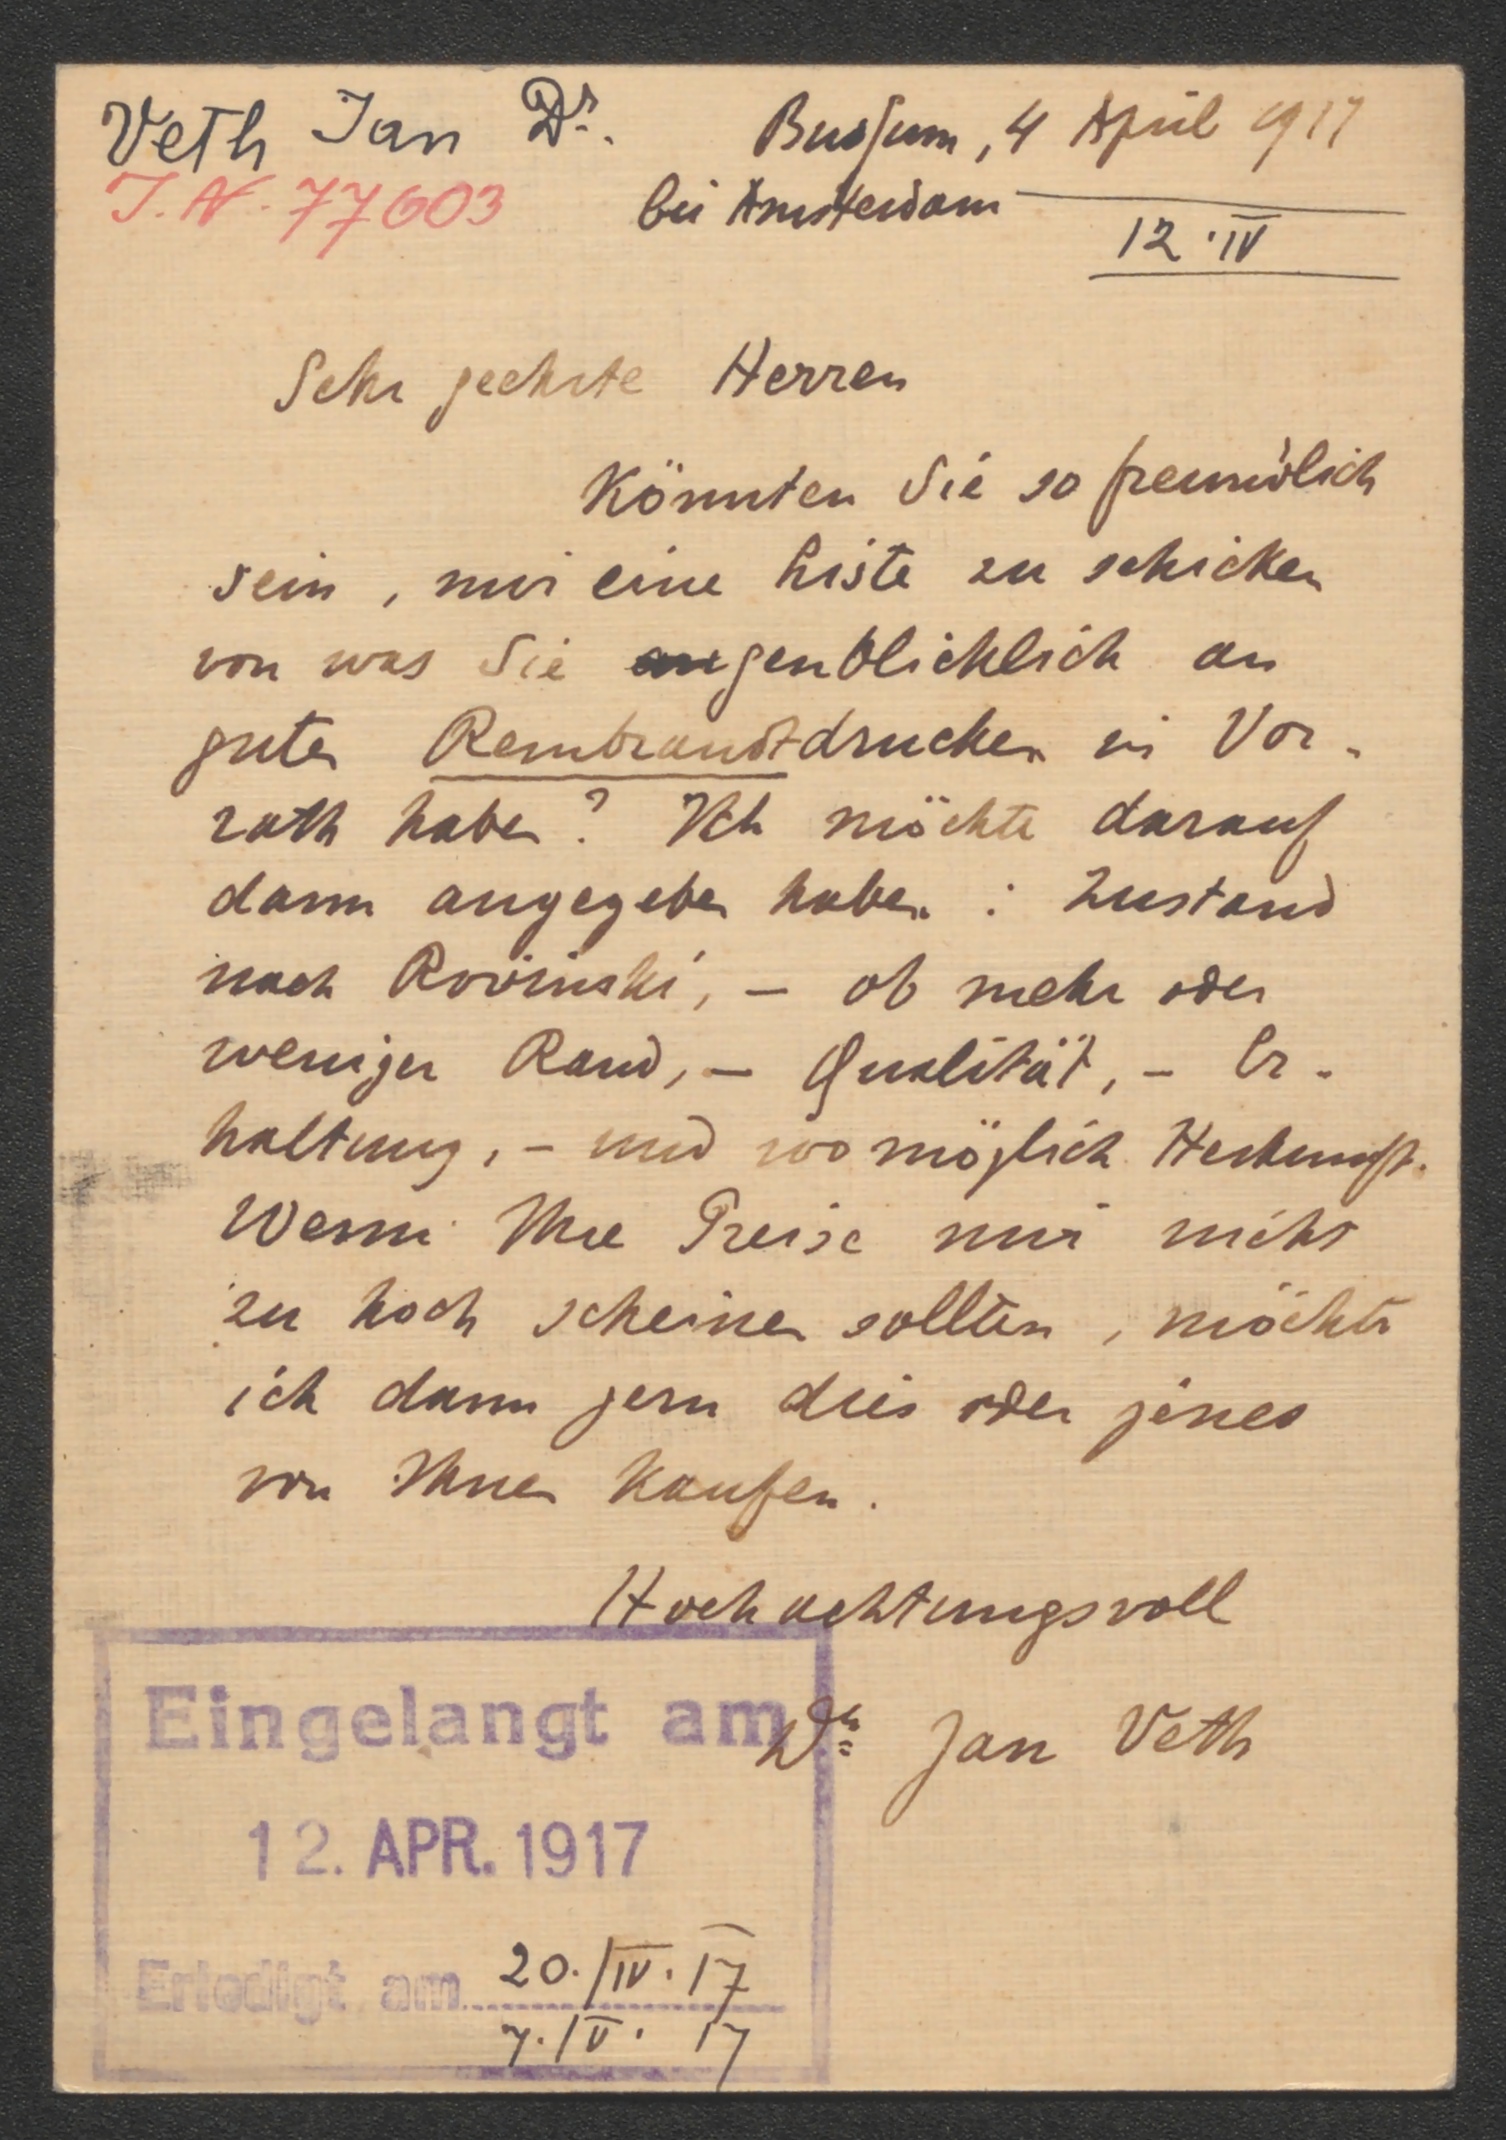 Veth Jan Dr.
Bussum, 4 April 1917
I.N. 77603
bei Amsterdam
12.IV
Sehr geehrte Herren
Könnten Sie so freundlich
sein, mir eine Liste zu schicken
von was Sie augenblicklich an
guten Rembrandtdrucken in Vor-
rath haben? Ich möchte darauf
dann angegeben haben: Zustand
nach Rovinski, – ob mehr oder
weniger Rand, – Qualität, – Er-
haltung, – und wo möglich Herkunft.
Wenn Ihre Preise mir nicht
zu hoch scheinen sollten, möchte
ich dann gern dies oder jenes
von Ihnen kaufen.
Hochachtungsvoll
Dr Jan Veth
Eingelangt am
12. APR. 1917
Erledigt am 20./IV. 17
7./V. 17